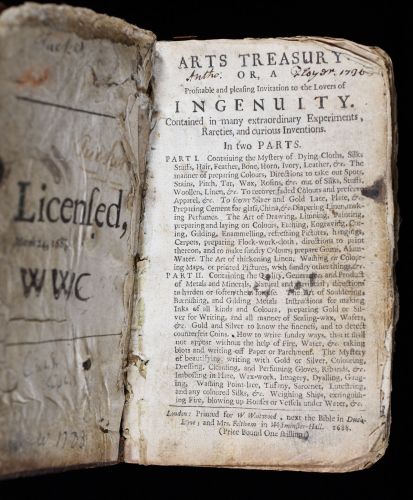 Licensed,
ARTS TREASURY:
OR, A
Profitable and pleasing Invitation to the Lovers of
INGENUITY.
Contained in many extraordinary Experiments,
Rareties, and curious Inventions.
In two PARTS.
PART I. Containing the Mystery of Dying Cloths, Silks
Stuffs, Hair, Feather, Bone, Horn, Ivory, Leather, &c. The
manner of preparing Colours, Directions to take out Spots,
Stains, Pitch, Tar, Wax, Rosin, &c. out of Silks, Stuffs,
Woollen, Linen, &c. To recover faded Colours and preserve
Apparel, &c. To scower Silver and Gold Lace, Plate, &c.
Preparing Cement for glass, China, &c. Diapering Linen, mak-
ing Perfumes. The Art of Drawing, Limning, Painting,
preparing and laying on Colours, Etching, Engraving, Carv-
ing, Gilding, Enammelling, refreshing Pictures, Hangings,
Carpets, preparing Flock-work-cloth, directions to print
thereon, and to make sundry Colours; prepare Gums, Alum-
Water. The Art of thickening Linen, Washing or Colour-
ing Maps, or printed Pictures, with sundry other things, &c.
PART II. Containing the Quality, Generation and Product
of Metals and Minerals, Natural and directions
to harden or soften them for use. The Art of Souldering,
Burnishing, and Gilding Metals Instructions for making
Inks of all kinds and Colours, preparing Gold or Sil-
ver for Writing, and all manner of Sealing-wax, Wafers,
&c. Gold and Silver to know the fineness, and to detect
counterfeit Coins. How to write sundry ways, that it shall
not appear without the help of Fire, Water, &c. taking
blots and writing out of Paper or Parchment. The Mystery
of beautifying writing with Gold or Silver, Colouring,
Dressing, Cleansing, and Perfuming Gloves, Ribands, &c.
Imbossing in Hair, Wax-work, Imagery, Dyalling, Gaug-
ing, Washing Point-lace, Tiffany, Sarcenet, Lutestring,
and any coloured Silks, &c. Weighing Ships, extinguish-
ing Fire, blowing up Houses or Vessels under Water, &c.
London: Printed for W Whitwood, next the Bible in Duck-
Lane; and Mrs. Feltham in Westminster-Hall. 1688.
(Price Bound One shilling)